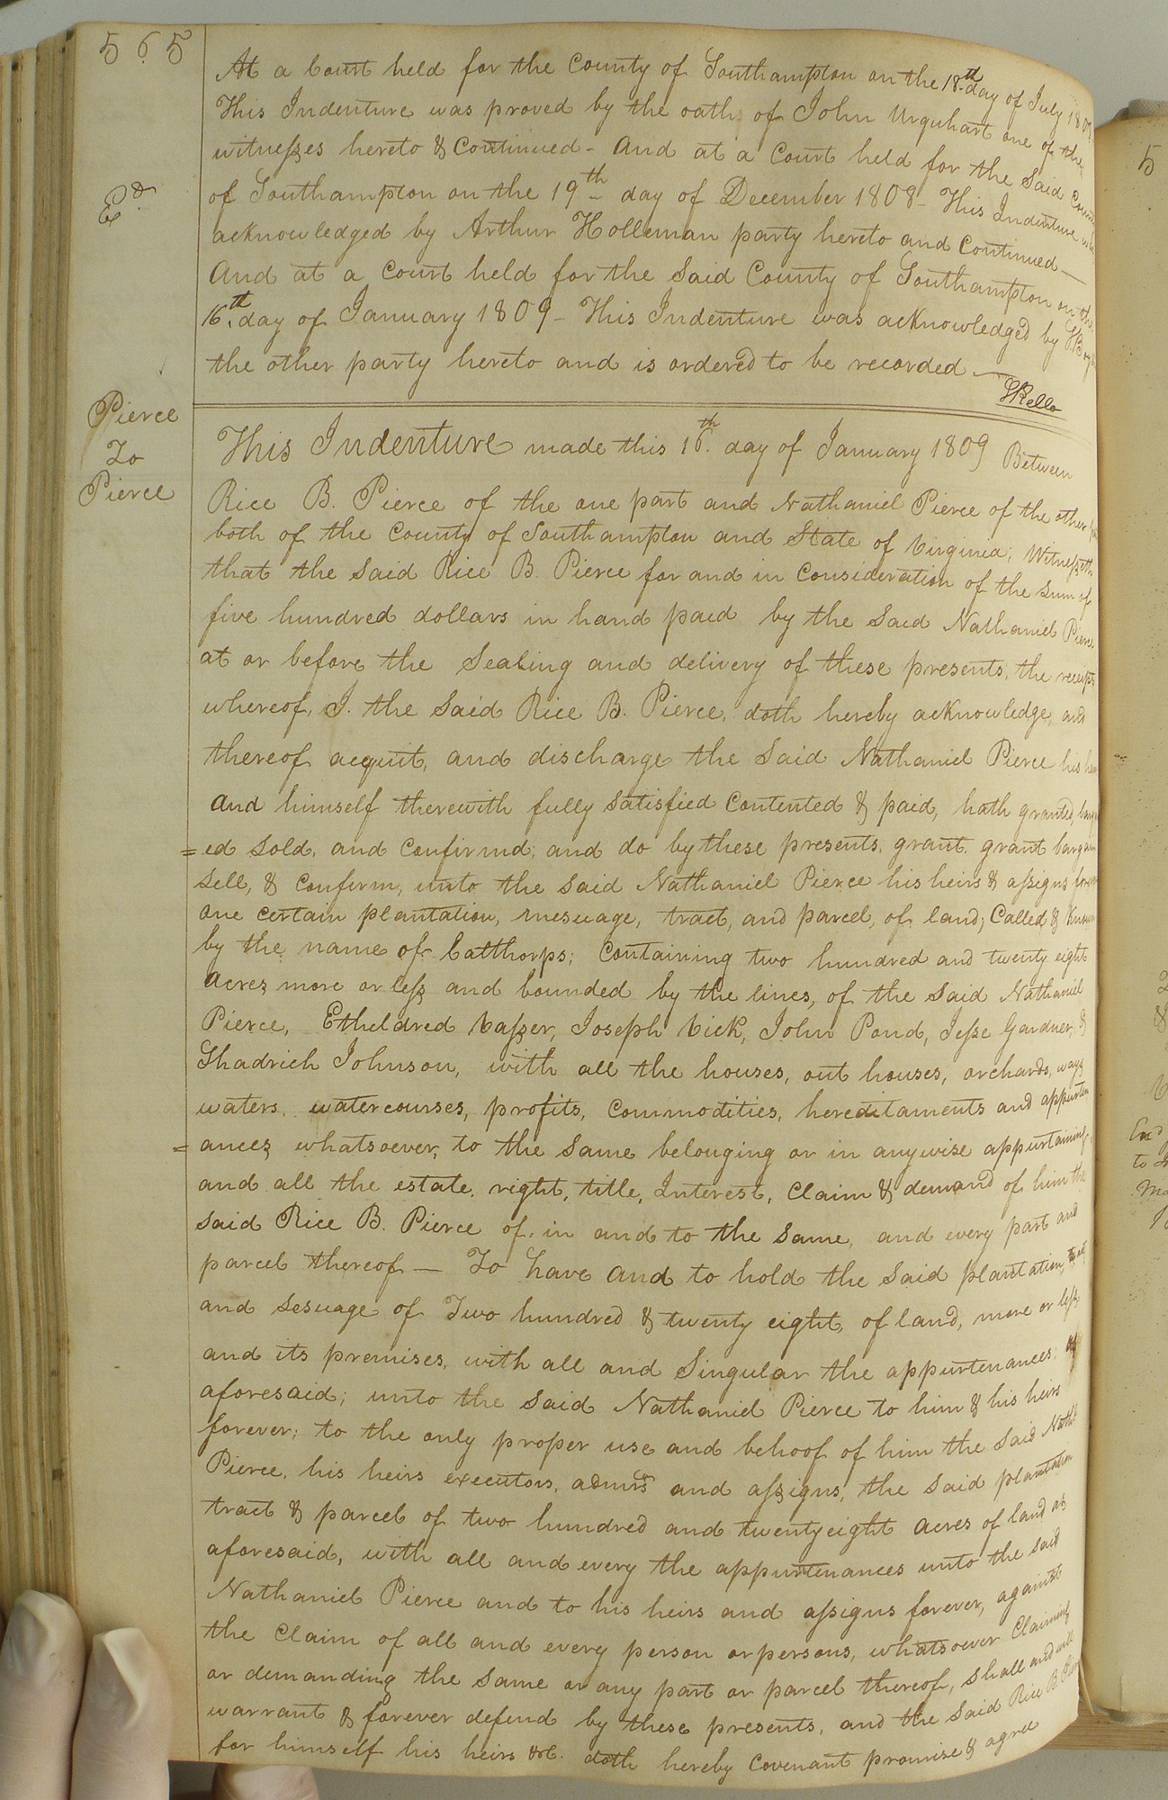 565
At a Court held for the County of Southampton on the 18th day of July 180
This Indenture was proved by the oath of John Urquhart one of the
witnesses hereto & Continued - And at a Court held for the Said County
Ed.
of Southampton on the 19th day of December 1808 - This Indenture was
acknowledged by Arthur Holleman party hereto and Continued —
And at a Court held for the Said County of Southampton on the
16th day of January 1809 - This Indenture was acknowledged by
the other party hereto and is ordered to be recorded —
SKello
Pierce
To
Pierce
This Indenture made this 16th day of January 1809 Between
Rice B. Pierce of the one part and Nathaniel Pierce of the other
both of the County of Southampton and State of Virginia; Witnesseth
that the Said Rice B. Pierce for and in Consideration of the Sum of
five hundred dollars in hand paid by the Said Nathaniel Pierce
at or before the Sealing and delivery of these presents, the receipt
whereof, I. the Said Rice B. Pierce, doth hereby acknowledge, and
thereof acquit, and discharge the Said Nathaniel Pierce his
And himself therewith fully Satisfied Contented & paid, hath granted,
=ed Sold, and Confirmd; and do by these presents, grant, grant bargain
Sell, & Confirm, unto the Said Nathaniel Pierce his heirs & assigns
One certain plantation, mesuage, tract, and parcel, of land; Called & Known
by the name of Catthorps; Containing two hundred and twenty eight
Acres more or less and bounded by the lines, of the Said Nathaniel
Pierce, Etheldred Vasser, Joseph Vick, John Pond, Jesse Gardner, &
Shadrich Johnson, with all the houses, out houses, orchards, ways
waters, watercourses, profits, Commodities, hereditaments and appurten
=ances whatsoever, to the Same belonging or in anywise appurtaining,
and all the estate, right, title, Interest, Claim & demand of him the
Said Rice B. Pierce of, in and to the Same, and every part and
parcel thereof — To have and to hold the Said plantation,
and sesuage of Two hundred & twenty eight, of land, more or less
and its premises, with all and Singular the appurtenances, as
aforesaid; unto the Said Nathaniel Pierce to him & his heirs
forever; to the only proper use and behoof of him the Said Nathl
Pierce, his heirs executors, admrs and assigns, the Said plantation
tract & parcel of two hundred and twenty eight Acres of land as
aforesaid, with all and every the appurtenances unto the Said
Nathaniel Pierce and to his heirs and assigns forever, against
the Claim of all and every person or persons, whatsoever Claiming
or demanding the Same or any part or parcel thereof, Shall and will
warrant & forever defend by these presents, and the Said Rice B. Pierce
for himself his heirs &c. doth hereby Covenant promise & agree